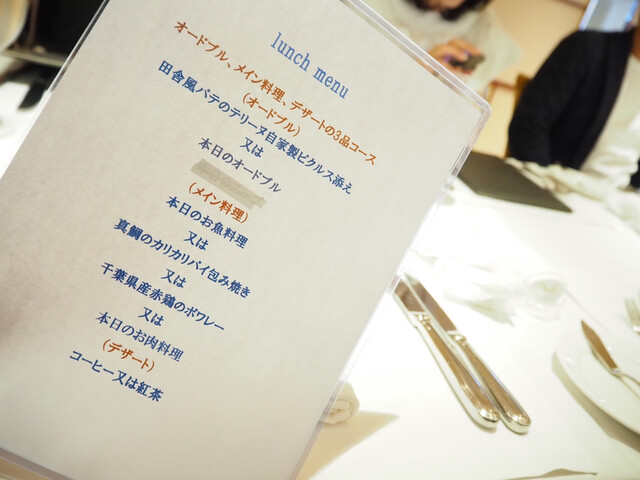 lunch menu
オードブル、メイン料理、デザートの3品コース
(オードブル)
田舎風パテのテリーヌ自家製ピクルス添え
又は
本日のオードブル
(メイン料理)
本日のお魚料理
又は
真鯛のカリカリパイ包み焼き
又は
千葉県産赤鶏のポワレー
又は
本日のお肉料理
(デザート)
コーヒー又は紅茶